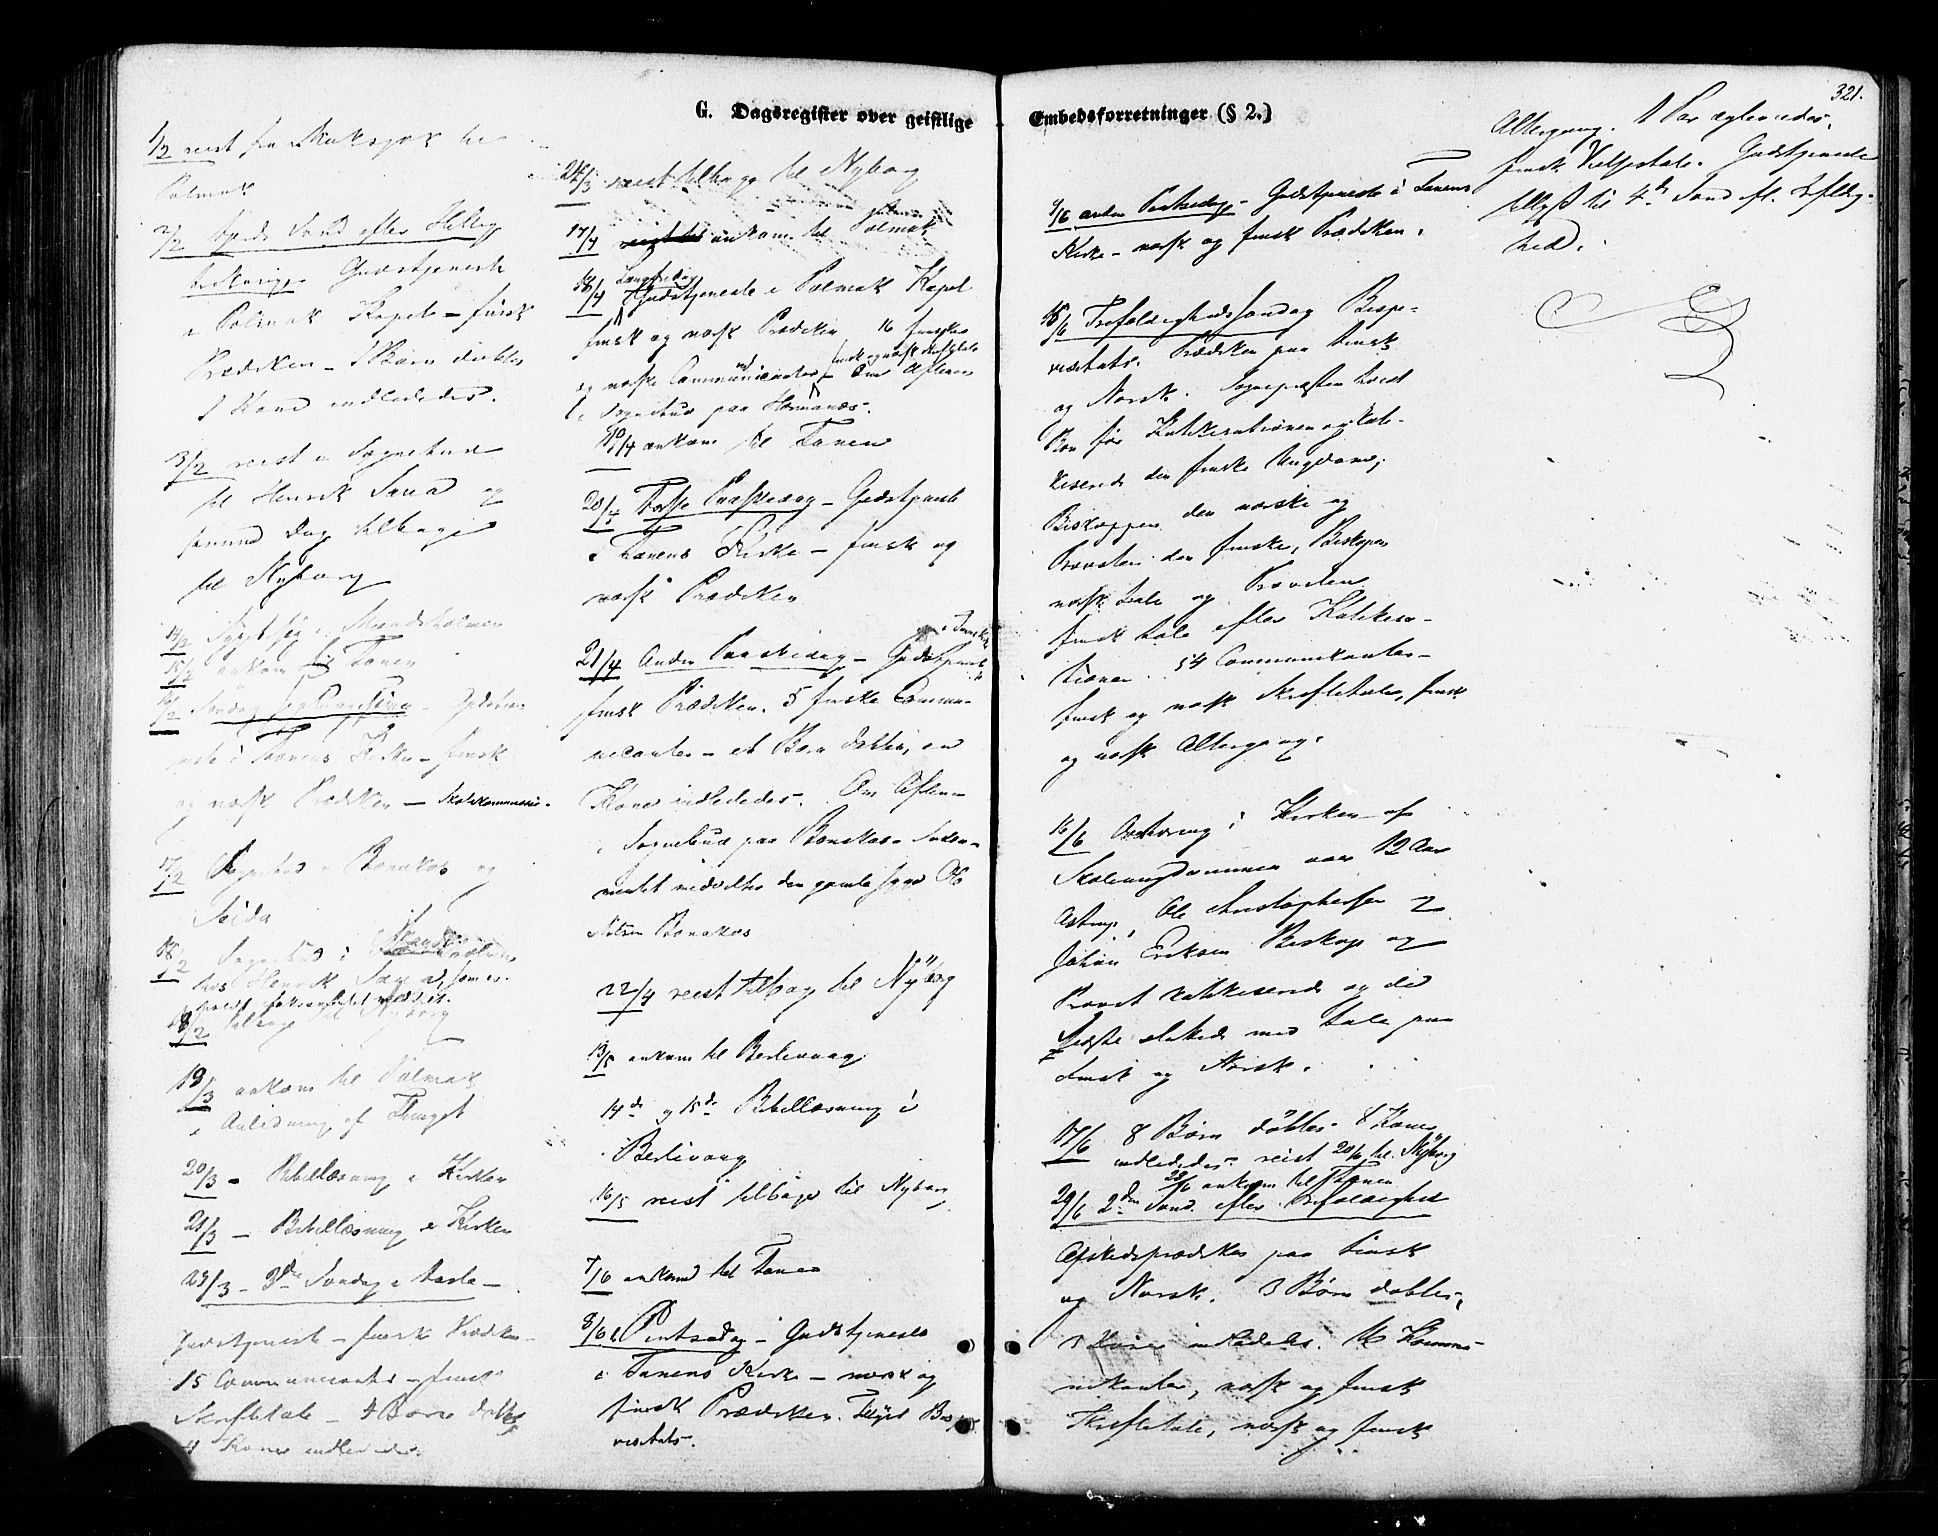 G. Dagsregister over geistlige
Embedsforretninger (§ 2.)
321.
1/2 reist fra
Polmak
2/2 Sønd. efter Hellig
trekonger Gudstjeneste
i Polmak Kapel – finsk
Prædiken – 1 Barn døbtes
1 Kone indlededes.
3/2 reist i Sognebud
til Henrik og
samme Dag tilbage
til Nyborg
14/2
15/2 ankom til Tanen
16/2 Søndag Septuagesima – Gudstje-
neste i Tanens Kirke – finsk
og norsk Prædiken – Skolekommission
17/2 Sognebud i Bonakas og
Seida
18/2 Sognebud i
hos Henrik
18/2 tilbage til Nyborg
19/3 ankom til Polmak
i Anledning af Thinget
20/3 – Bibellæsning i Kirken
21/3 – Bibellæsning i Kirken
23/3 – 3die Søndag i Faste –
Gudstjeneste – finsk Prædiken –
15 Communicanter – finsk
Skriftetale – 4 Børn døbtes
4 Koner indlededes.
24/3 reist tilbage til Nyborg
17/4 ankom til Polmak
18/4 Langfredag Gudstjeneste i Polmak Kapel
finsk og norsk Prædiken 16 finske
og norske Communicanter finsk og norsk Skriftetale – Om Aftenen
i Sognebud paa
19/4 ankom til Tanen
20/4 Første Paaskedag – Gudstjeneste
i Tanens Kirke – finsk og
norsk Prædiken
21/4 Anden Paaskedag – Gudstjeneste
finsk Prædiken. 5 finske Commu-
nicanter – et Barn døbtes, en
Kone indlededes. Om Aftenen
i Sognebud paa Bonakas – Sakra-
mentet meddeltes den gamle syge Ole
Nilsen Bonakas
22/4 reist tilbage til Nyborg
13/5 ankom til Berlevaag.
14de og 15de Bibellæsning i
Berlevaag
16/5 reist tilbage til Nyborg
7/6 ankom til Tanen
8/6 1 Pintsedag – Gudstjeneste
i Tanens Kirke – norsk og
finsk Prædiken. Tillyst Bispe-
visitats.
9/6 anden Pintsedag – Gudstjeneste i Tanens
Kirke – norsk og finsk Prædiken.
15/6 Trefoldighedssøndag Bispe-
visitats. Prædiken paa Finsk
og Norsk. Sognepræsten holdt
Bøn før Katekisationen og kate-
kiserede den finske Ungdom;
Biskoppen den norske og
Provsten den finske, Biskopen
norsk Tale og Provsten
finsk Tale efter Katekisa-
tionen. 54 Communikanter –
finsk og norsk Skriftetale, finsk
og norsk Altergang.
16/6 i Kirken af
Skoleungdommen 12
Astrup, Ole Christophersen
Johan Eriksen Biskop og
Provst katekiserede og de
sidste sluttede med Tale paa
Finsk og Norsk.
17/6 8 Børn døbtes – 8 Koner
indlededes – reist 20/6 til Nyborg
28/6 ankom til Tanen
29/6 2den Sønd. efter Trefoldighed
Afskedsprædiken paa Finsk
og Norsk. 3 Børn døbtes,
3 Koner indlededes. 16 Kommu-
nikanter, norsk og finsk
Skriftetale, norsk og finsk
Altergang. 1 Par ægteviedes,
finsk Vielsestale. Gudstjeneste
tillyst til 4de Sønd. eft. Trefoldig-
hed.